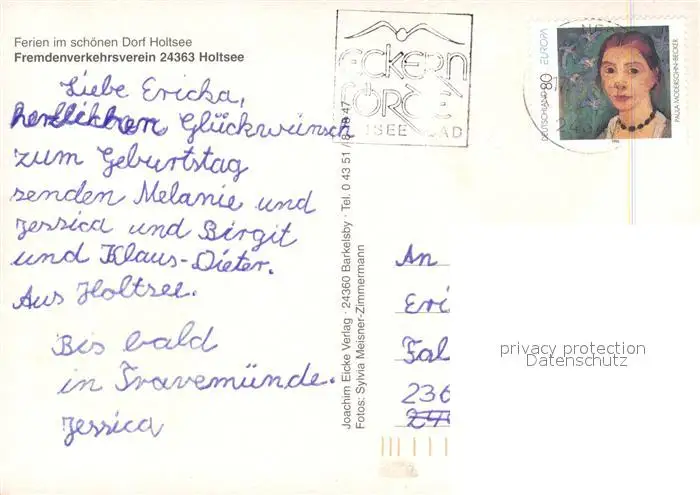 Ferien im schönen Dorf Holtsee
Fremdenverkehrsverein 24363 Holtsee
Liebe Ericka,
herzlichen Glückwünsch
zum Geburtstag
senden Melanie und
Jessica und Birgit
und Klaus-Dieter.
Aus Holtsee.
Bis bald
in Travemünde.
Jessica
Joachim Eicke Verlag · 24360 Barkelsby · Tel. 0 43 51 / 8 18 47
Fotos: Sylvia Meisner-Zimmermann
ECKERN
FÖRDE
OSTSEEBAD
DEUTSCHLAND 80 EUROPA
PAULA MODERSOHN-BECKER
An
Eri
Fal
236
privacy protection
Datenschutz